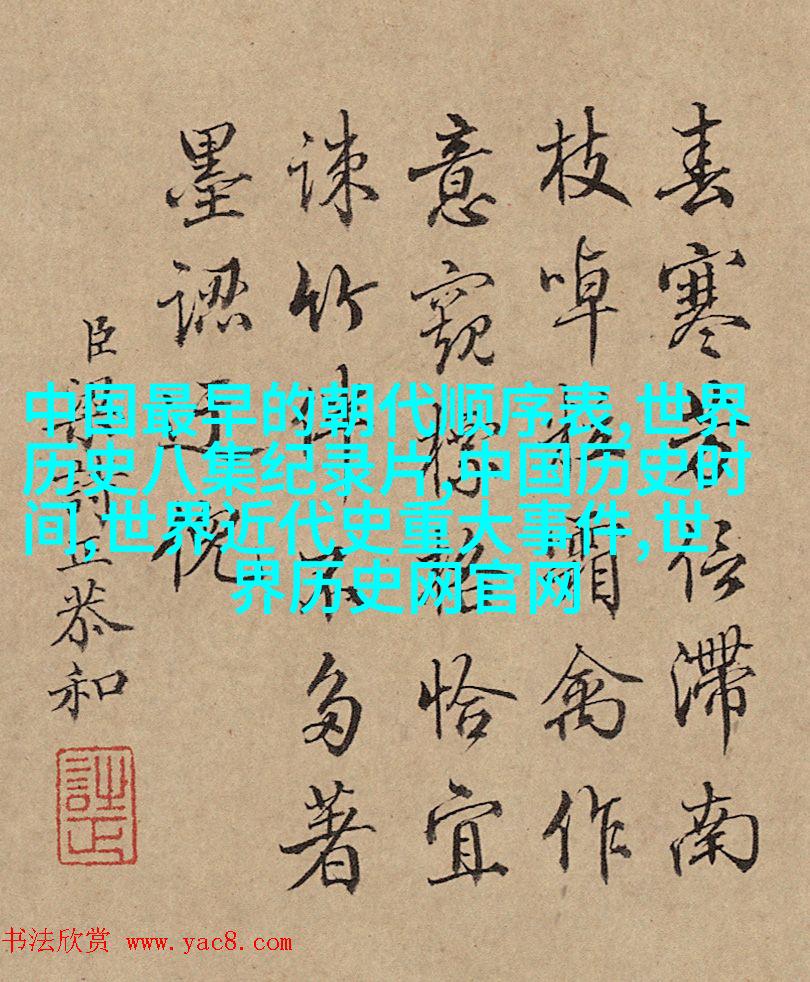 中国最早的朝代顺序表,世界
历史八集纪录片,中国历史时
间,世界近代史重大事件,世
界历史网官网
春寒花信滯南
枝啅霜禽作
意窺橫恰宜
竹多著
墨倪
臣梁詩正恭和
书法欣赏 www.yac8.com